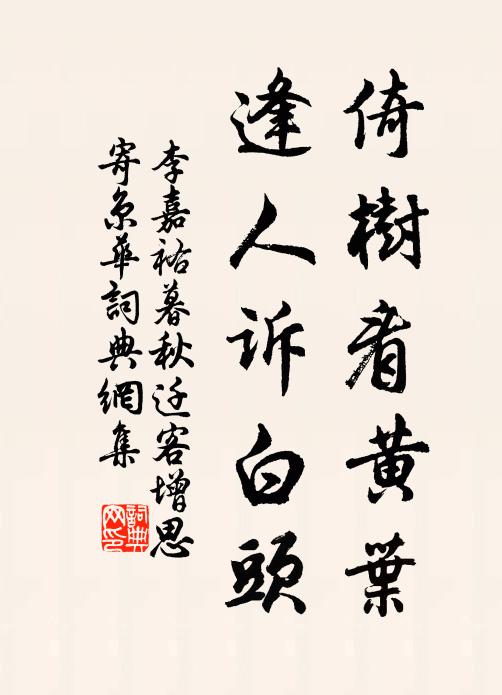 倚樹看黄葉
逢人訴白頭
李嘉祐暮秋迁客增思
寄京華詞典網集
詞典
网印